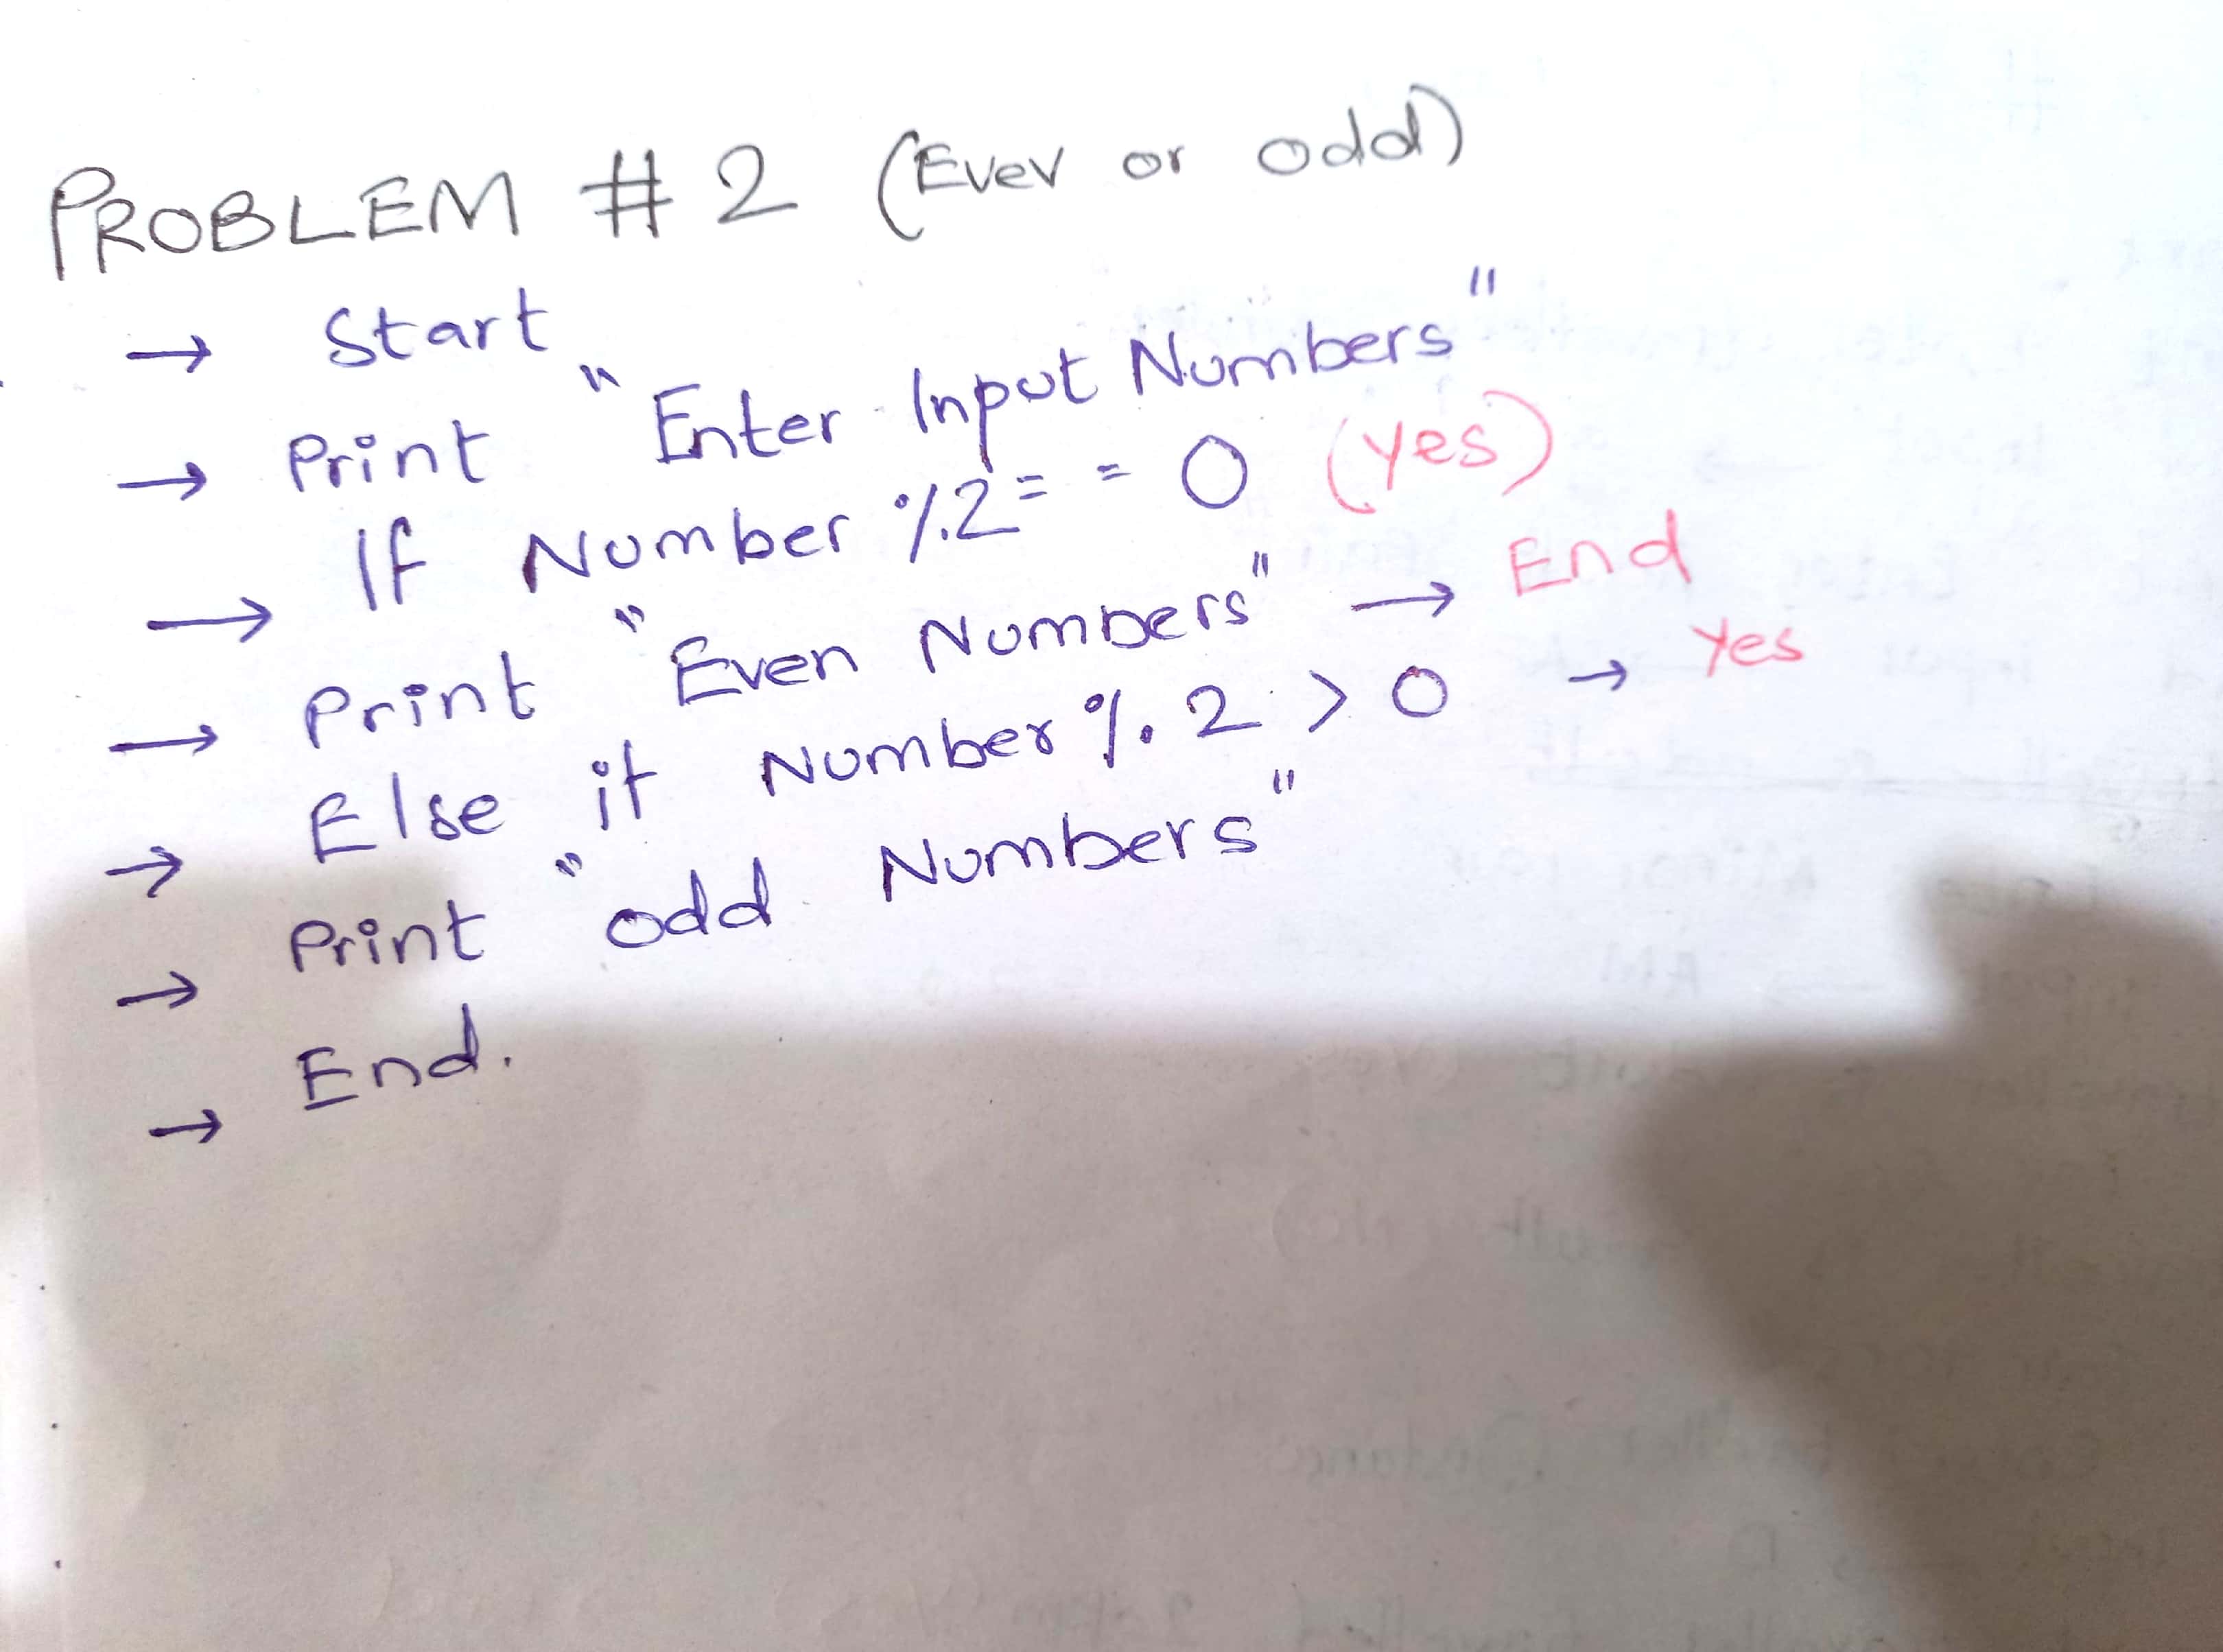 PROBLEM # 2 (Evev or odd)
→ Start
→ Print "Enter Input Numbers"
→ If Number %2 = = 0 (yes)
→ Print "Even Numbers" → End
→ Else if Number % 2 > 0 → Yes
→ Print "odd Numbers"
→ End.